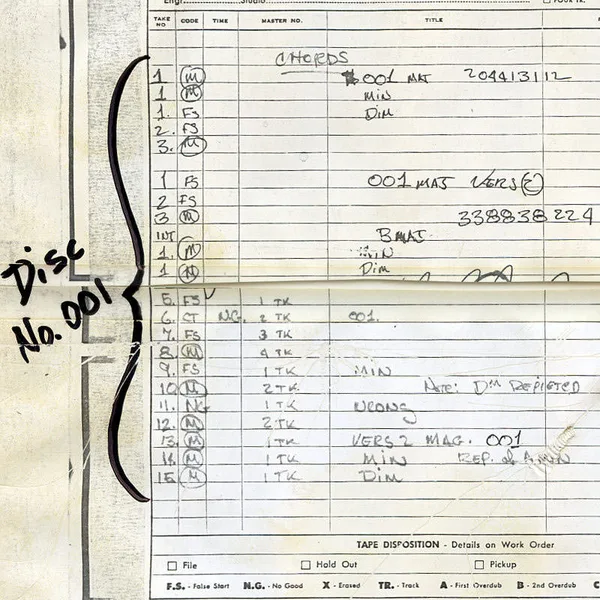 TAKE NO CODE TIME MASTER NO. TITLE
CHORDS
1 M 001 MAJ 204413112
1 M MIN
1. FS DIM
2. FS
3. M
1 FS 001 MAJ VERS(2)
2 FS
3 M 338838224
INT B MAJ
1. M MIN
1 M DIM
Disc No. 001
5. FS 1 TK
6. CT N.G. 2 TK 001.
7. FS 3 TK
8. M 4 TK
9. FS 1 TK MIN
10. M 2 TK Note: Dm REPEATED
11. NG 1 TK WRONG
12. M 2 TK
13. M 1 TK VERS 2 MAG. 001
14. M 1 TK MIN REP. of A MIN
15. M 1 TK DIM
TAPE DISPOSITION - Details on Work Order
File Hold Out Pickup
F.S. - False Start N.G. - No Good X - Erased TR. - Track A - First Overdub B - 2nd Overdub C